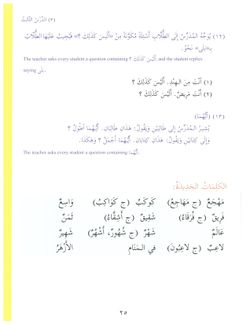 (٣) الدَّرْسُ الثَّالِثُ
(١٢) يُوَجِّهُ المُدَرِّسُ إِلَى الطُّلَّابِ أَسْئِلَةً مُكَوَّنَةً مِنْ «أَلَيْسَ كَذَلِكَ ؟» فَيُجِيبُ عَلَيْهَا الطُّلَّابُ
بِـ«بَلَى» نَحْوُ:
The teacher asks every student a question containing أَلَيْسَ كَذَلِكَ ؟ and the student replies
saying بَلَى.
(١) أَنْتَ مِنَ الهِنْدِ. أَلَيْسَ كَذَلِكَ ؟
(٢) أَنْتَ مَرِيضٌ. أَلَيْسَ كَذَلِكَ ؟
(١٣) (أَيُّهُمَا)
يُشِيرُ المُدَرِّسُ إِلَى طَالِبَيْنِ وَيَقُولُ: هَذَانِ طَالِبَانِ. أَيُّهُمَا أَطْوَلُ ؟
وَإِلَى كِتَابَيْنِ وَيَقُولُ: هَذَانِ كِتَابَانِ. أَيُّهُمَا أَجْمَلُ ؟ وَهَكَذَا.
The teacher asks every student a question containing أَيُّهُمَا.
الكَلِمَاتُ الجَدِيدَةُ:
مَهْجَعٌ (ج مَهَاجِعُ) كَوْكَبٌ (ج كَوَاكِبُ) وَاسِعٌ
فَرِيقٌ (ج فُرَقَاءُ) شَقِيقٌ (ج أَشِقَّاءُ) ثَمَنٌ
عَالَمٌ شَهْرٌ (ج شُهُورٌ، أَشْهُرٌ) شَهِيرٌ
لَاعِبٌ (ج لَاعِبُونَ) فِي المَنَامِ الأَزْهَرُ
٢٥